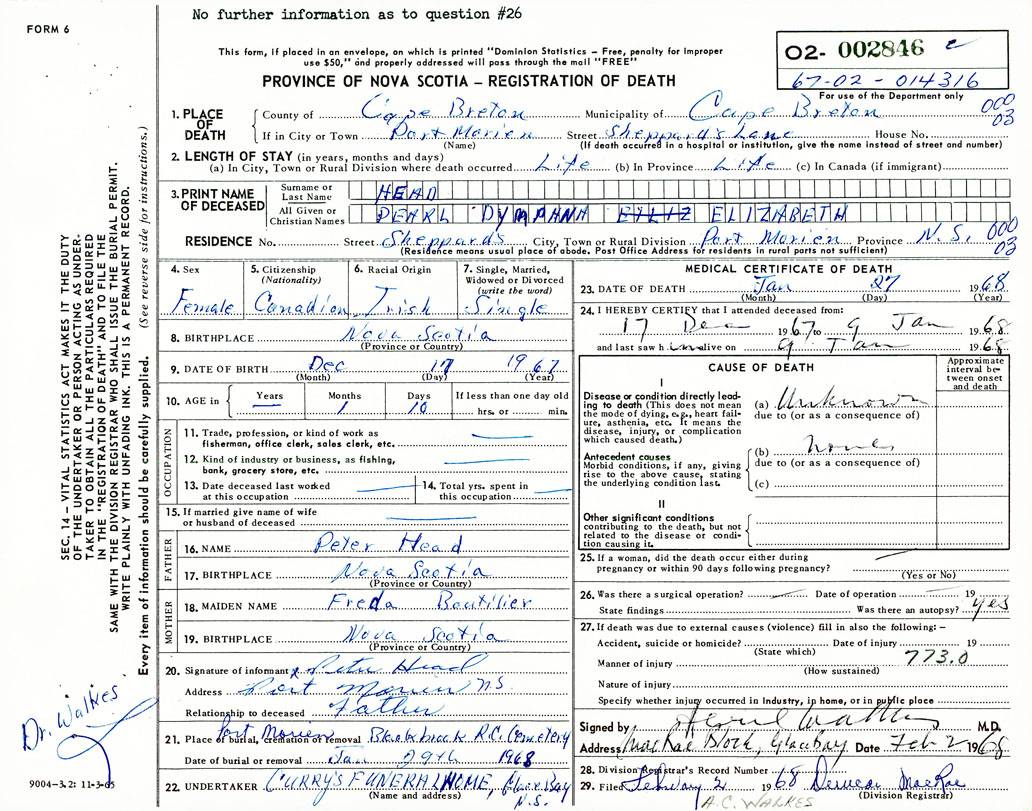 No further information as to question #26
FORM 6
This form, if placed in an envelope, on which is printed "Dominion Statistics – Free, penalty for improper
use $50," and properly addressed will pass through the mail "FREE"
PROVINCE OF NOVA SCOTIA – REGISTRATION OF DEATH
O2- 002846
67-02-014316
For use of the Department only
1. PLACE OF DEATH
County of Cape Breton Municipality of Cape Breton 000 03
If in City or Town Port Morien Street Sheppard's Lane House No.
(Name) (If death occurred in a hospital or institution, give the name instead of street and number)
2. LENGTH OF STAY (in years, months and days)
(a) In City, Town or Rural Division where death occurred Life (b) In Province Life (c) In Canada (if immigrant)
3. PRINT NAME OF DECEASED
Surname or Last Name HEAD
All Given or Christian Names PEARL DYMPANA ELIZABETH
RESIDENCE No. Street Sheppards City, Town or Rural Division Port Morien Province N.S. 000 03
(Residence means usual place of abode. Post Office Address for residents in rural parts not sufficient)
4. Sex Female
5. Citizenship (Nationality) Canadian
6. Racial Origin Irish
7. Single, Married, Widowed or Divorced (write the word) Single
8. BIRTHPLACE Nova Scotia
(Province or Country)
9. DATE OF BIRTH Dec 17 1967
(Month) (Day) (Year)
10. AGE in Years Months 1 Days 10 If less than one day old hrs. or min.
OCCUPATION
11. Trade, profession, or kind of work as
fisherman, office clerk, sales clerk, etc.
12. Kind of industry or business, as fishing,
bank, grocery store, etc.
13. Date deceased last worked at this occupation
14. Total yrs. spent in this occupation
15. If married give name of wife
or husband of deceased
FATHER
16. NAME Peter Head
17. BIRTHPLACE Nova Scotia
(Province or Country)
MOTHER
18. MAIDEN NAME Freda Boutilier
19. BIRTHPLACE Nova Scotia
(Province or Country)
20. Signature of informant x Peter Head
Address Port Morien N.S.
Relationship to deceased Father
21. Place of burial, cremation or removal Port Morien R.C. Cemetery
Date of burial or removal Jan 29th 1968
22. UNDERTAKER CURRY'S FUNERAL HOME, Glace Bay N.S.
(Name and address)
MEDICAL CERTIFICATE OF DEATH
23. DATE OF DEATH Jan 27 1968
(Month) (Day) (Year)
24. I HEREBY CERTIFY that I attended deceased from:
17 Dec 1967 to 9 Jan 1968
and last saw h im alive on 9 Jan 1968
CAUSE OF DEATH
Approximate interval between onset and death
I
Disease or condition directly leading to death (This does not mean
the mode of dying, e.g., heart failure, asthenia, etc. It means the
disease, injury, or complication
which caused death.)
(a) Unknown
due to (or as a consequence of)
Antecedent causes
Morbid conditions, if any, giving
rise to the above cause, stating
the underlying condition last.
(b)
due to (or as a consequence of)
(c)
II
Other significant conditions
contributing to the death, but not
related to the disease or condition causing it.
25. If a woman, did the death occur either during
pregnancy or within 90 days following pregnancy?
(Yes or No)
26. Was there a surgical operation? Date of operation 19
State findings Was there an autopsy? yes
27. If death was due to external causes (violence) fill in also the following: –
Accident, suicide or homicide? Date of injury 19
(State which)
Manner of injury 773.0
(How sustained)
Nature of injury
Specify whether injury occurred in industry, in home, or in public place
Signed by M.D.
Address MacRae Block, Glace Bay Date Feb 2 1968
28. Division Registrar's Record Number
29. Filed February 2 1968 Duncan MacRae
(Division Registrar)
A.C. WALKES
SEC. 14 – VITAL STATISTICS ACT MAKES IT THE DUTY
OF THE UNDERTAKER OR PERSON ACTING AS UNDER-
TAKER TO OBTAIN ALL THE PARTICULARS REQUIRED
IN THE "REGISTRATION OF DEATH" AND TO FILE THE
SAME WITH THE DIVISION REGISTRAR WHO SHALL ISSUE THE BURIAL PERMIT.
WRITE PLAINLY WITH UNFADING INK. THIS IS A PERMANENT RECORD.
Every item of information should be carefully supplied. (See reverse side for instructions.)
Dr. Walkes
9004-3.2: 11-3-65